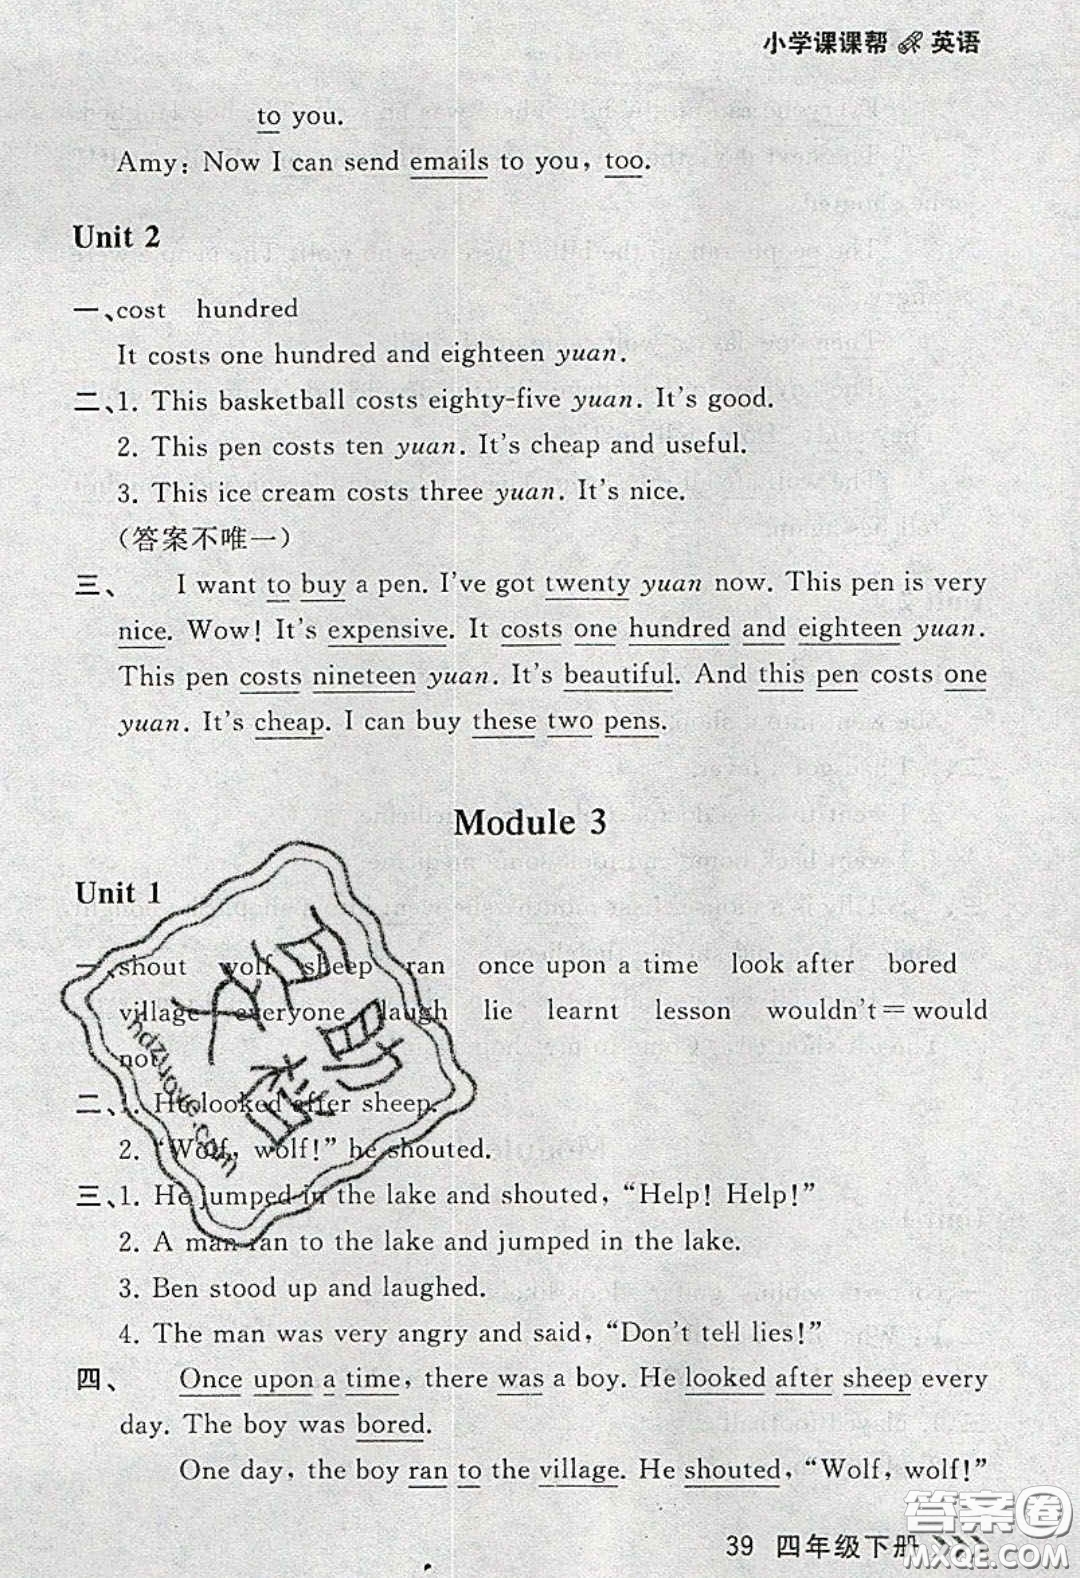 小学课课帮 英语
to you.
Amy: Now I can send emails to you, too.
Unit 2
一、cost hundred
It costs one hundred and eighteen yuan.
二、1. This basketball costs eighty-five yuan. It's good.
2. This pen costs ten yuan. It's cheap and useful.
3. This ice cream costs three yuan. It's nice.
(答案不唯一)
三、 I want to buy a pen. I've got twenty yuan now. This pen is very
nice. Wow! It's expensive. It costs one hundred and eighteen yuan.
This pen costs nineteen yuan. It's beautiful. And this pen costs one
yuan. It's cheap. I can buy these two pens.
Module 3
Unit 1
一、shout wolf sheep ran once upon a time look after bored
village everyone laugh lie learnt lesson wouldn't=would
not
二、1. He looked after sheep.
2. "Wolf, wolf!" he shouted.
三、1. He jumped in the lake and shouted, "Help! Help!"
2. A man ran to the lake and jumped in the lake.
3. Ben stood up and laughed.
4. The man was very angry and said, "Don't tell lies!"
四、 Once upon a time, there was a boy. He looked after sheep every
day. The boy was bored.
One day, the boy ran to the village. He shouted, "Wolf, wolf!"
39 四年级下册
答案圈
MXQE.COM